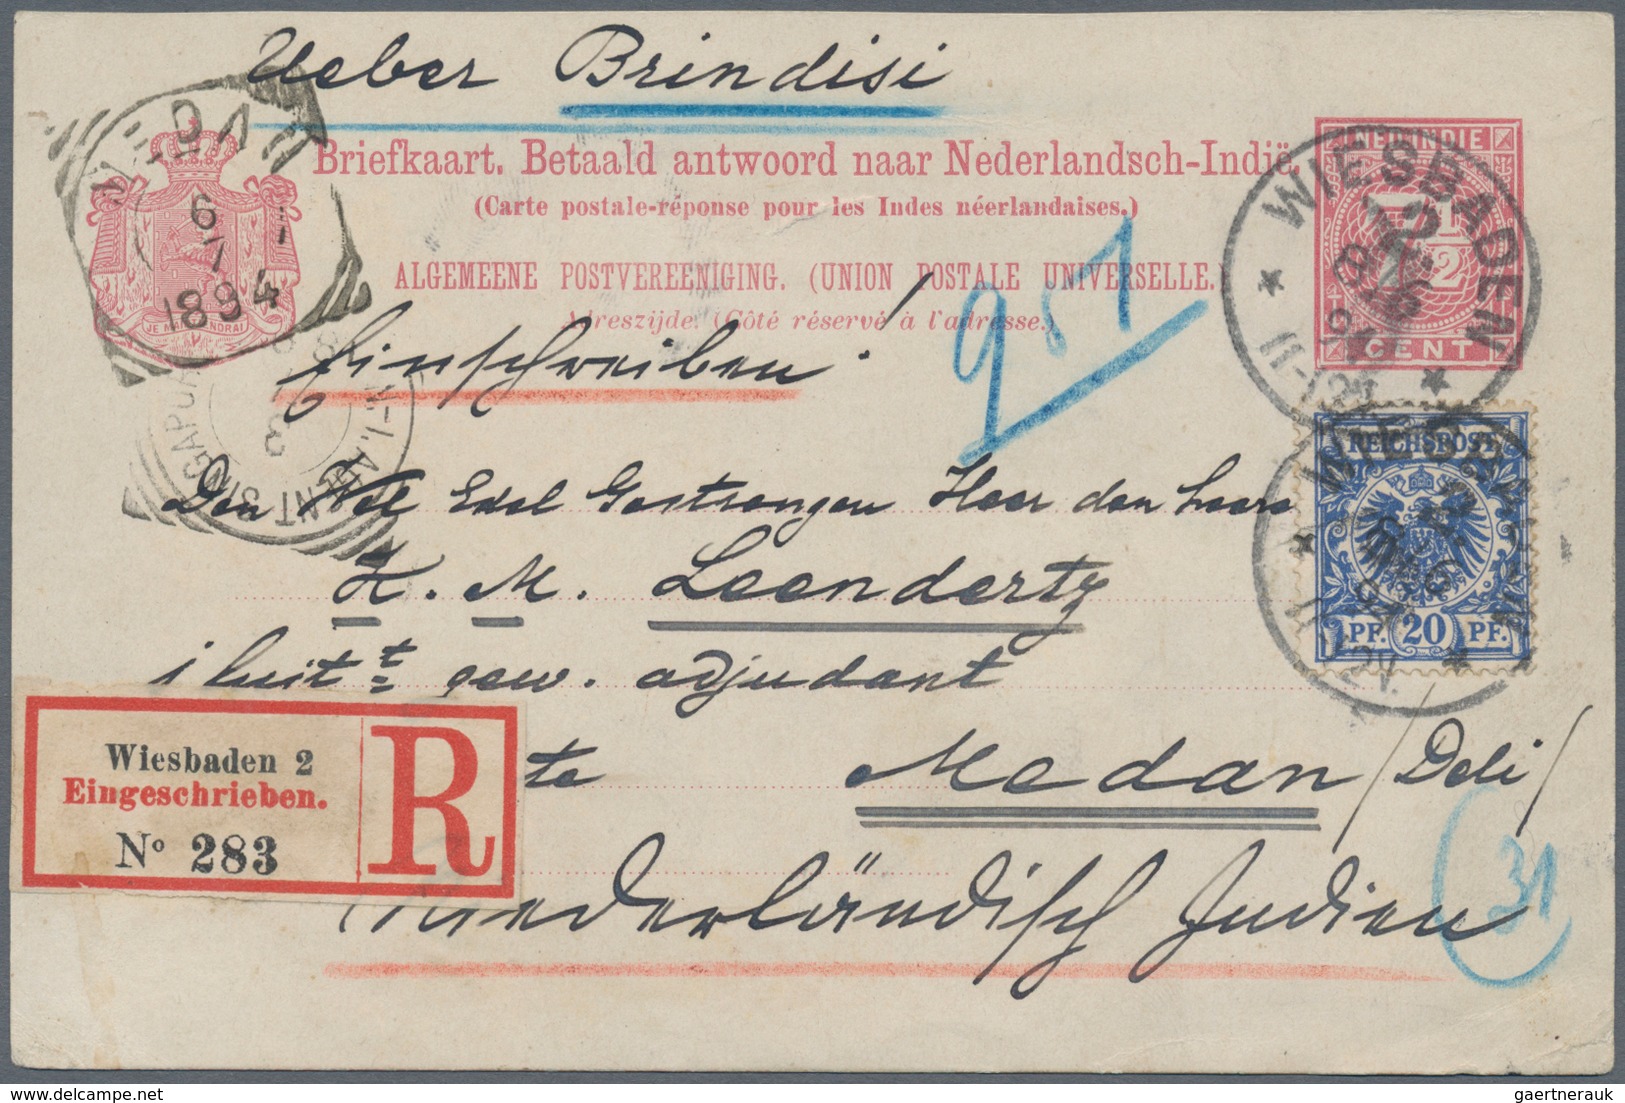 Ueber Brindisi
Briefkaart. Betaald antwoord naar Nederlandsch-Indië.
(Carte postale-réponse pour les Indes néerlandaises.)
ALGEMEENE POSTVEREENIGING. (UNION POSTALE UNIVERSELLE.)
Adreszijde. (Côté réservé à l'adresse.)
MEDAN
6
1894
JE MAINTIENDRAI
N.-I. AGENT SINGAPORE
NED-INDIE
7 1/2
CENT
WIESBADEN
Einschreiben!
257
REICHSPOST
PF. 20 PF.
WIESBADEN
Den Wel Edel Gestrengen Heer den heere
H. M. Leendertz
1 luitt gew. adjudant
te Medan /Deli/
Niederländisch Indien
31
Wiesbaden 2
Eingeschrieben.
No 283
R
gaertnerauk@gmail.com
gaertnerauk